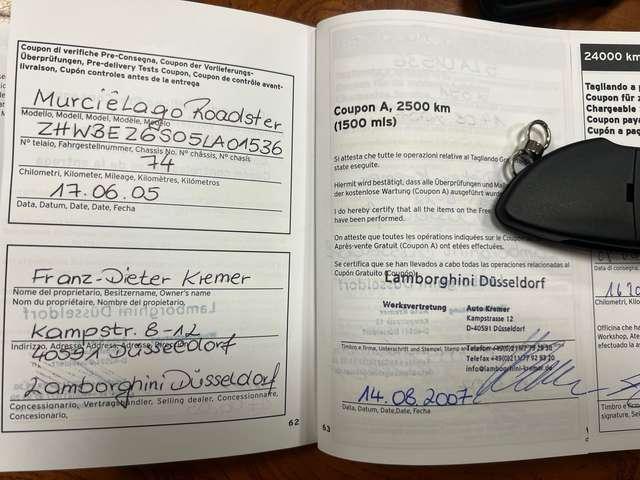 Coupon di verifiche Pre-Consegna, Coupon der Vorlieferungs-
Überprüfungen, Pre-delivery Tests Coupon, Coupon de contrôle avant-
livraison, Cupón controles antes de la entrega
Murciêlago Roadster
Modello, Modell, Model, Modèle, Modelo
ZHWBE26S05LA01536
N° telaio, Fahrgestellnummer, Chassis No. N° châssis, N° chasis
74
Chilometri, Kilometer, Mileage, Kilomètres, Kilómetros
17.06.05
Data, Datum, Date, Date, Fecha
Franz-Dieter Kremer
Nome del proprietario, Besitzername, Owner's name
Nom du propriétaire, Nombre del propietario.
Kampstr. 8-12
Indirizzo, Adresse, Address, Adresse,
40591 Düsseldorf
Lamborghini Düsseldorf
Concessionario, Vertragshändler, Selling dealer, Concessionnaire,
Concesionario,
62
Coupon A, 2500 km
(1500 mls)
Si attesta che tutte le operazioni relative al Tagliando
state eseguite.
Hiermit wird bestätigt, dass alle Überprüfungen und
der kostenlose Wartung (Coupon A) ausgeführt
I do hereby certify that all the items on the Free
have been performed.
On atteste que toutes les opérations indiquées sur le
Après-vente Gratuit (Coupon A) ont etées effectuées.
Se certifica que se han llevados a cabo todas las operaciones relacionadas al
Cupón Gratuito
Lamborghini Düsseldorf
Werksvertretung
Auto Kremer
Kampstrasse 12
D-40591 Düsseldorf
Timbro e firma, Unterschrift und Stempel, Stamp
info@lamborghini-kremer.de
14.08.2007
Data, Datum, Date,Date, Fecha
63
24000 km
Tagliando a
Coupon für
Chargeable
Coupon
Cupón a